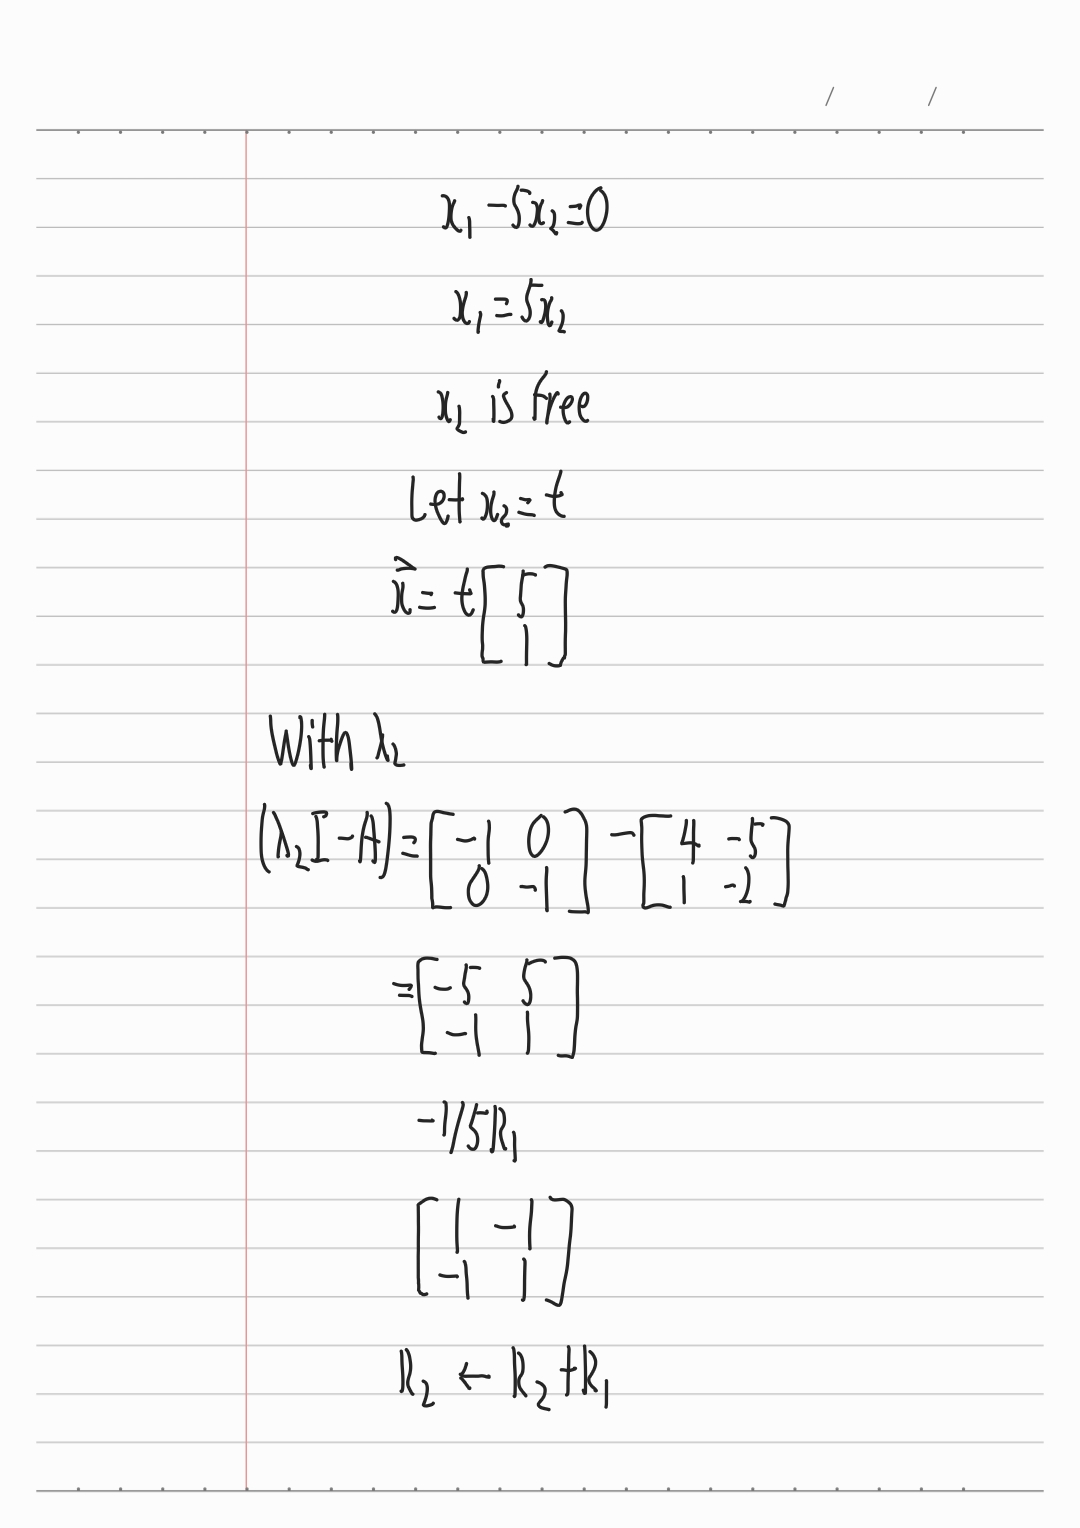 x₁ -5x₂=0
x₁ = 5x₂
x₂ is free
Let x₂ = t
x⃗ = t [ 5
1 ]
With λ₂
(λ₂I - A) = [ -1 0
0 -1 ] - [ 4 -5
1 -2 ]
= [ -5 5
-1 1 ]
-1/5R₁
[ 1 -1
-1 1 ]
R₂ ← R₂ + R₁